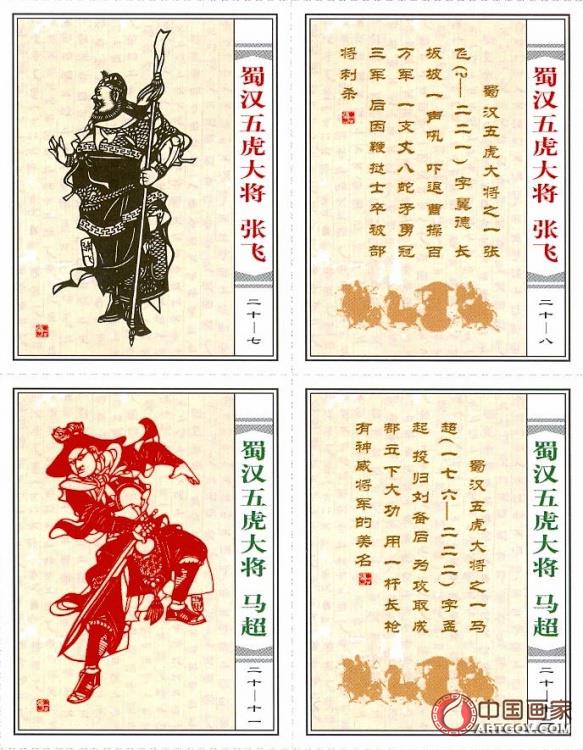 蜀汉五虎大将 张飞
二十—七
蜀汉五虎大将 张飞
二十—八
蜀汉五虎大将之一张
飞(?—二二一)字翼德 长
坂坡一声吼 吓退曹操百
万军 一支丈八蛇矛勇冠
三军 后因鞭挞士卒被部
将刺杀
蜀汉五虎大将 马超
二十—十一
蜀汉五虎大将 马超
二十—
蜀汉五虎大将之一马
超(一七六—二二二)字孟
起 投归刘备后 为攻取成
都立下大功 用一杆长枪
有神威将军的美名
中国画家
ARTGOV.COM